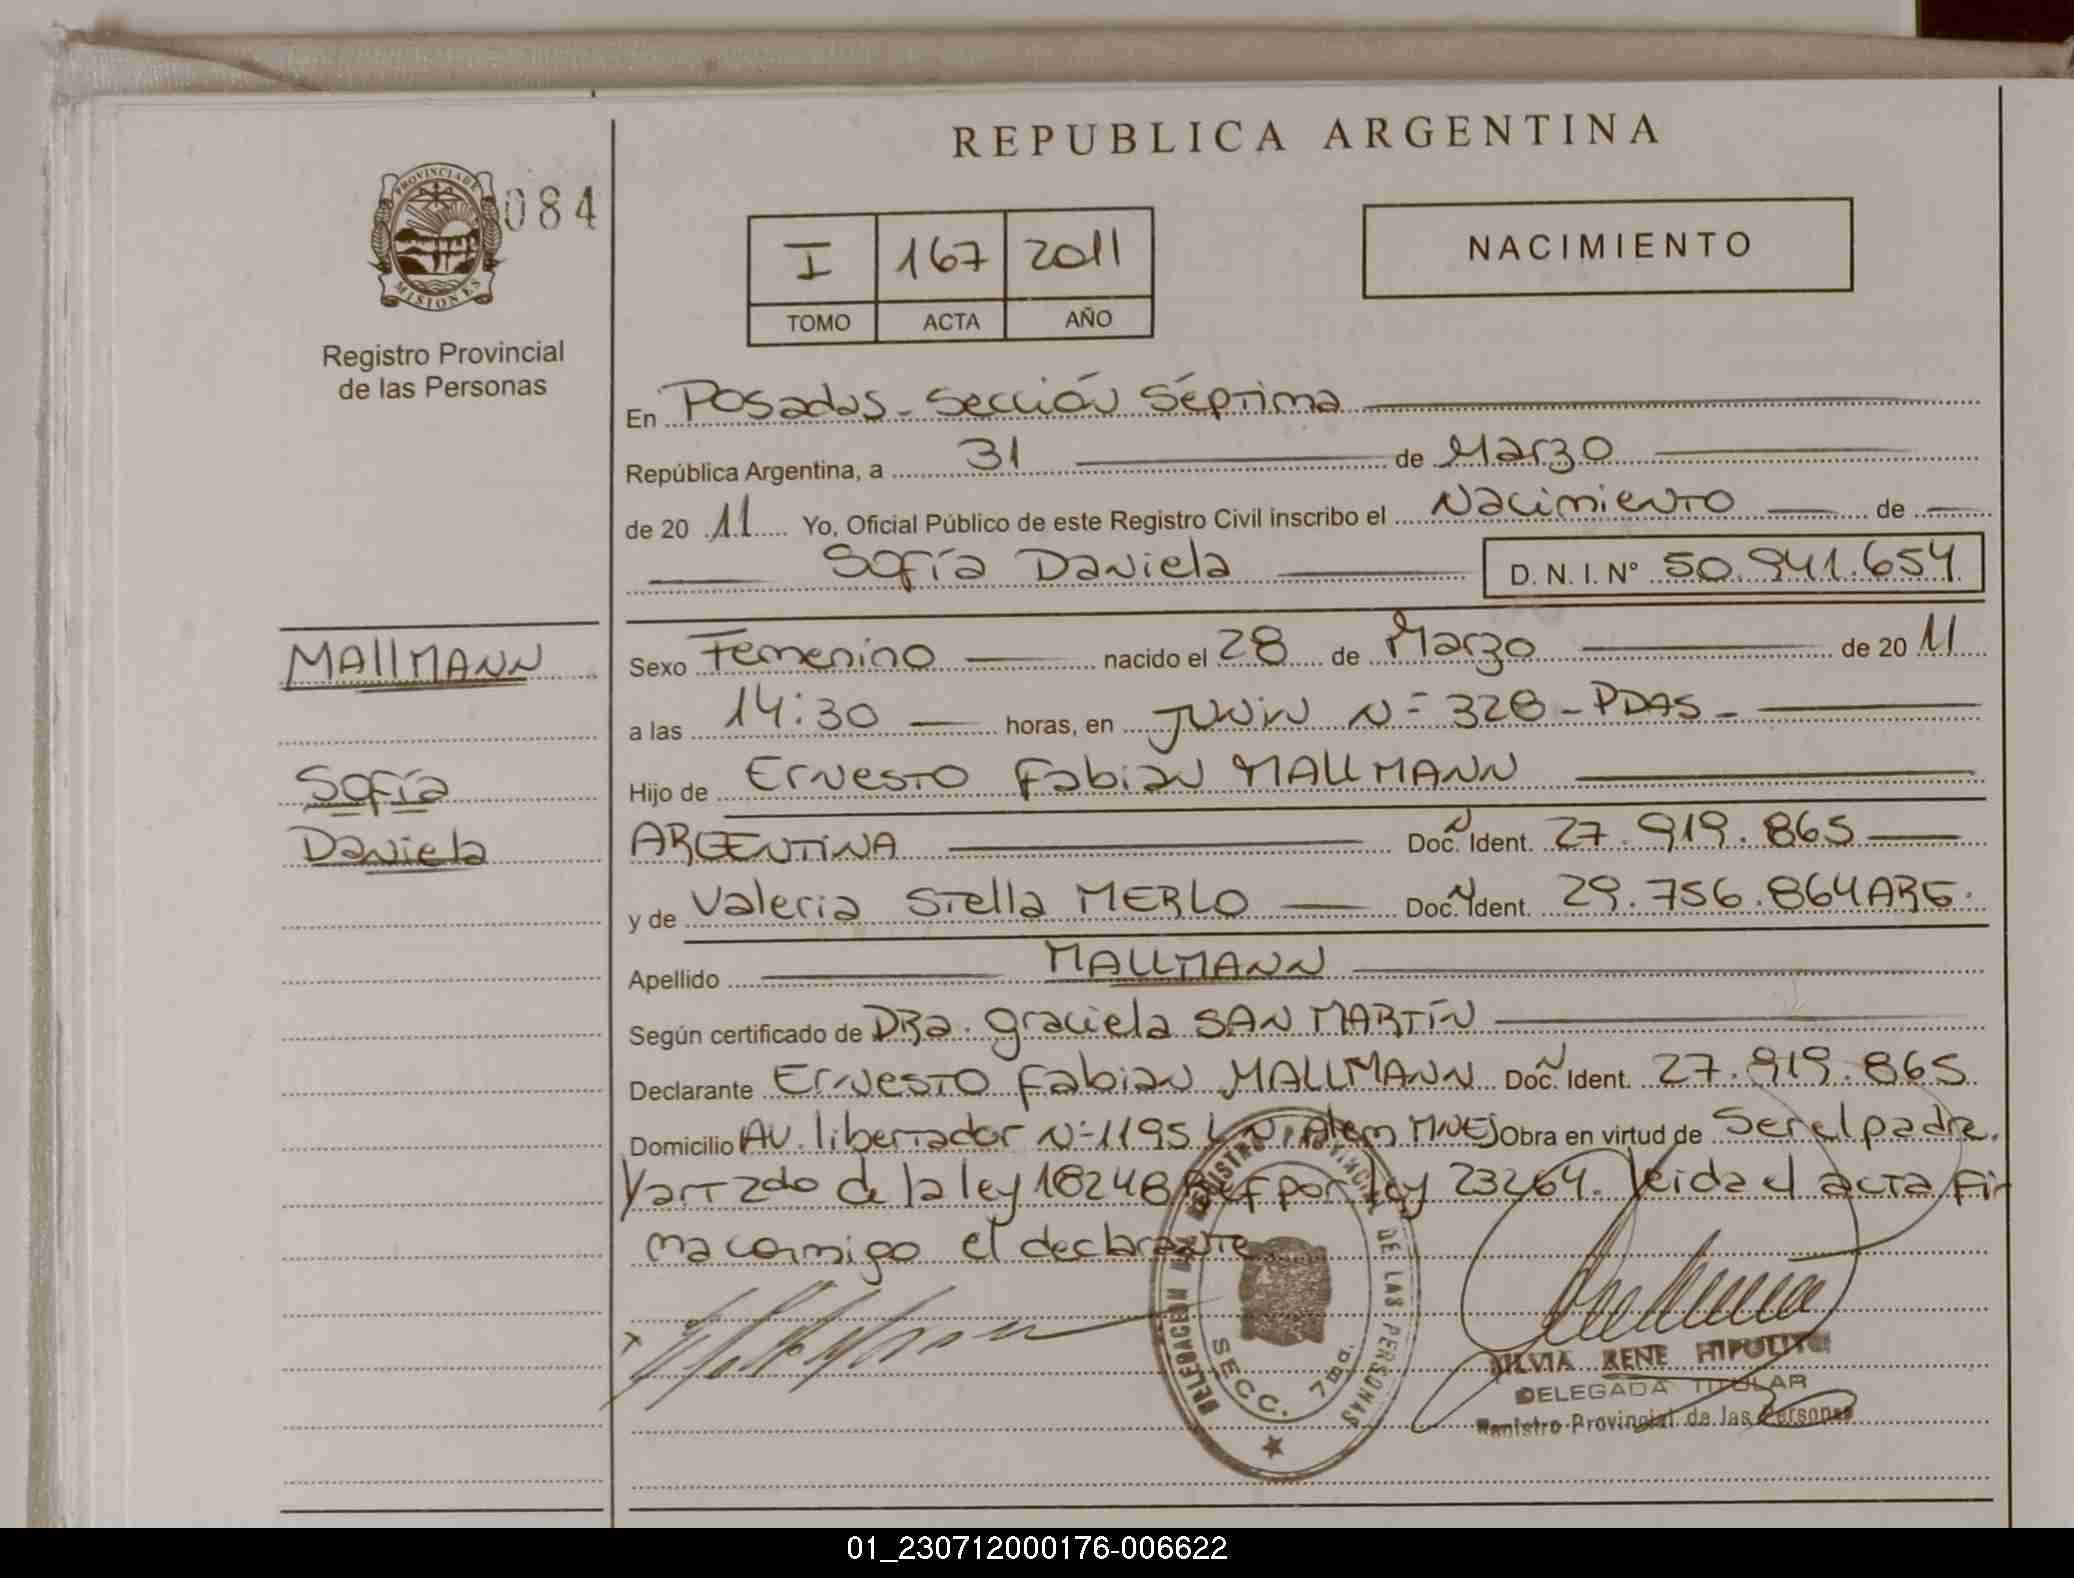 REPUBLICA ARGENTINA
PROVINCIA DE MISIONES
084
Registro Provincial
de las Personas
I 167 2011
TOMO ACTA AÑO
NACIMIENTO
En Posadas - Sección Séptima
República Argentina, a 31 de Marzo
de 20 11 Yo, Oficial Público de este Registro Civil inscribo el Nacimiento de
Sofía Daniela D. N. I. N° 50.941.654
MALLMANN
Sofía
Daniela
Sexo Femenino nacido el 28 de Marzo de 20 11
a las 14:30 horas, en JUNIN N= 328 - PDAS -
Hijo de Ernesto Fabian MALLMANN
ARGENTINA Doc. Ident. 27.919.865
y de Valeria Stella MERLO Doc. Ident. 29.756.864 ARG.
Apellido MALLMANN
Según certificado de DRa. Graciela SAN MARTÍN
Declarante Ernesto Fabian MALLMANN Doc. Ident. 27.919.865
Domicilio AV. libertador N=1195 L. N. Alem MNES Obra en virtud de Ser el padre.
Y art 2do de la ley 18248 Ref por ley 23264. leida el acta fir
ma conmigo el declarante
DELEGACION REGISTRO PROVINCIAL DE LAS PERSONAS
SECC. 7ma.
SILVIA RENE HIPOLITO
DELEGADA TITULAR
Registro Provincial de las Personas
01_230712000176-006622